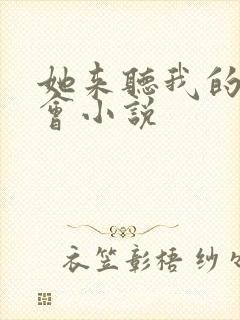 她来聽我的
會小説
衣笠彰梧 纱